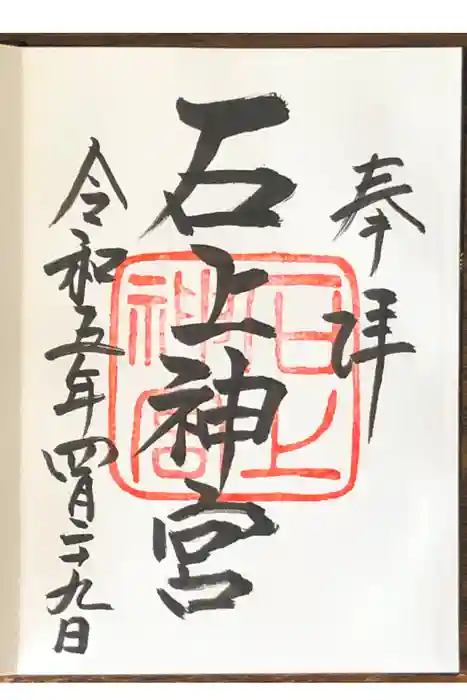 奉拝
石上神宮
石上
神宮
令和五年四月二十九日